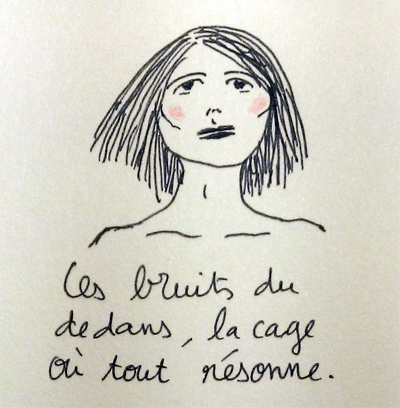 Ces bruits du
dedans, la cage
où tout résonne.